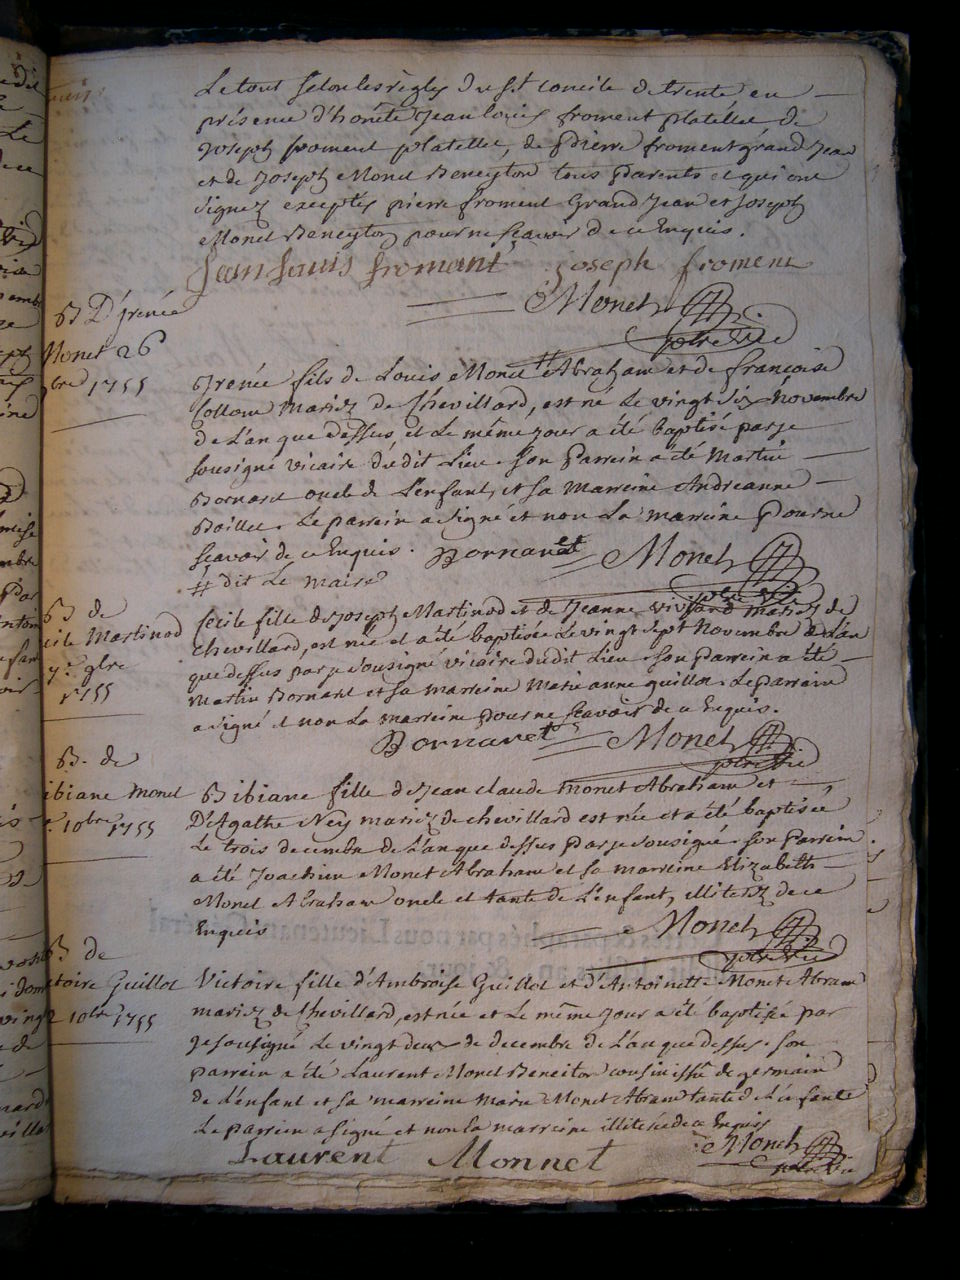 Le tout selon les règles du st concile de trente en
présence d'honête Jean louis froment platellee de
Joseph froment platellee, de Pierre froment grand Jean
et de Joseph Monet Beneyton tous parents et qui ont
signez exceptés pierre froment Grand Jean et Joseph
Monet Beneyton pour ne sçavoir de ce Enquis.
Jean Louis fromant Joseph froment
Monet
ptre vic
B D'jrénée
Monet 26
9bre 1755
Jrenée fils de Louis Monet # Abraham et de françoise
Collom mariez de Chevillard, est né Le vingt six Novembre
de L'an que dessus, et Le même jour a été baptisé par je
sousigné vicaire dudit Lieu. son Parrein a été Martin
Bornard oncle de L'enfant, et sa marreine Andréanne
Baillee. Le parrein a signé et non La marreine Pour ne
sçavoir de ce Enquis. Bornaret Monet
ptre vic
# dit Le maire
B de
cile Martinod
7e 9bre
1755
Cécile fille de Joseph Martinod et de Jeanne vivi mariez de
Chevillard, est née et a été baptisée Le vingt sept Novembre de L'an
que dessus par je sousigné vicaire dudit Lieu. son Parrein a été
Martin Bornard et sa marreine Marie anne guillot. Le parrain
a signé et non La marreine pour ne sçavoir de ce Enquis.
Bornaret Monet
ptre vic
B. de
ibiane Monet
10bre 1755
Bibiane fille de Jean claude Monet Abraham et
D'Agathe Ney mariez de chevillard est née et a été baptisée
Le trois decembre de L'an que dessus par je sousigné. son Parrein
a été Joachim Monet Abraham et sa marreine Elizabeth
Monet Abraham oncle et tante de L'enfant, illiterez de ce
Enquis Monet
ptre vic
B de
ctoire Guillot
2 10bre 1755
Victoire fille d'Ambroise Guillot et d'Antoinette Monet Abram
mariez de Chevillard, est née et Le même jour a été baptisée par
je sousigné Le vingt deux de decembre de L'an que dessus. son
parrein a été Laurent Monet Beneiton cousin issu de germain
de L'enfant et sa marreine Marie Monet Abram tante de L'enfante
Le parrein a signé et non la marreine illiterée de ce Enquis
Laurent Monnet Monet
ptre vic